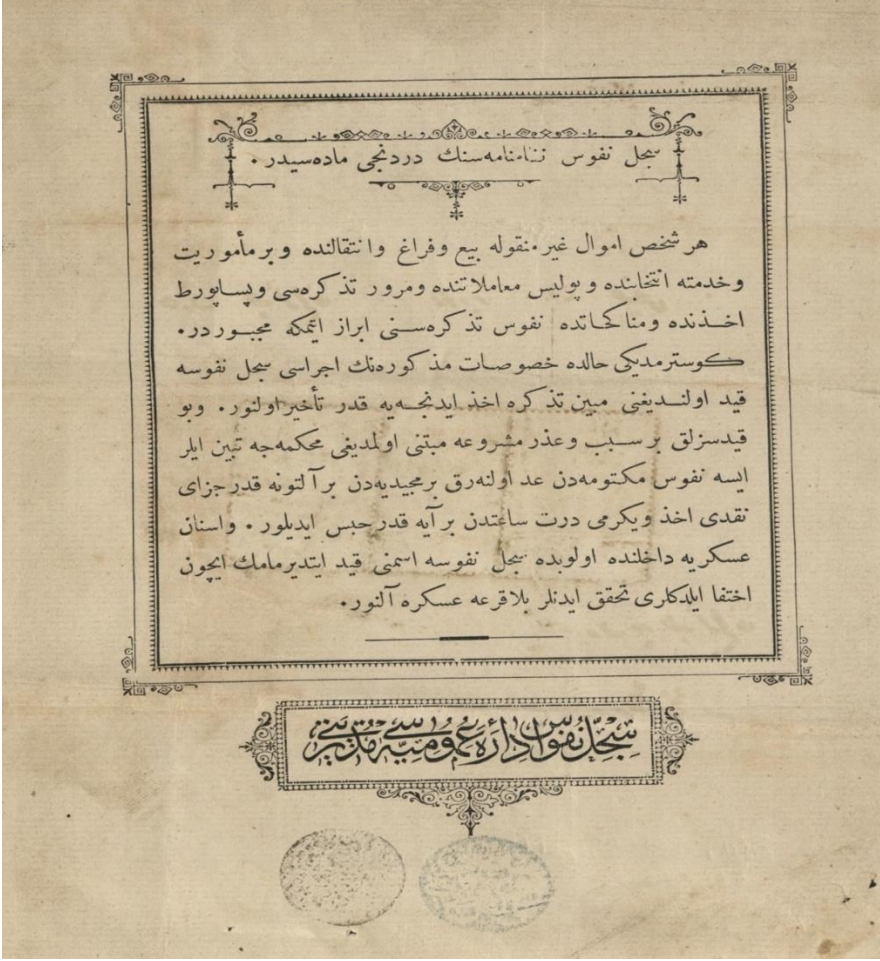 سجل نفوس نظامنامه‌سنك دردنجی ماده‌سیدر ·
هر شخص اموال غیر منقوله بیع وفراغ وانتقالنده وبر مأموریت
وخدمته انتخابنده وپولیس معاملاتنده ومرور تذكره‌سی وپساپورط
اخذنده ومناكحاتده نفوس تذكره‌سنی ابراز ایتمكه مجبوردر ·
كوسترمدیكی حالده خصوصات مذكوره‌نك اجراسی سجل نفوسه
قید اولندیغنی مبین تذكره اخذ ایدنجه‌یه قدر تأخیر اولنور · وبو
قیدسزلق بر سبب وعذر مشروعه مبتنی اولمدیغی محكمه‌جه تبین ایلر
ایسه نفوس مكتومه‌دن عد اولنه‌رق بر مجیدیه‌دن بر آلتونه قدر جزای
نقدی اخذ ویكرمی درت ساعتدن بر آیه قدر حبس ایدیلور · واسنان
عسكریه داخلنده اولوبده سجل نفوسه اسمنی قید ایتدیرمامك ایچون
اختفا ایلدكلری تحقق ایدنلر بلاقرعه عسكره آلنور ·
سجلّ نفوس ادارهٔ عمومیه‌سی مدیریتی